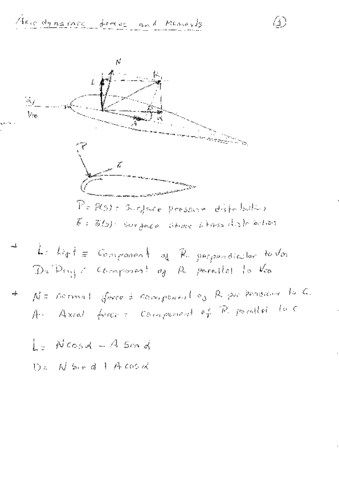 Aerodynamic forces and Moments ①
N
L
R
A
V∞
P
P = P(s) = Surface pressure distribution
τ = τ(s) = surface shear stress distribution
L = Lift ≡ Component of R perpendicular to V∞
D = Drag = Component of R parallel to V∞
N = normal force ≡ component of R perpendicular to C.
A = Axial force = Component of R parallel to C
L = N cosα - A Sinα
D = N Sinα + A cosα